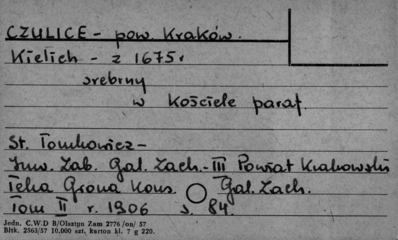 CZULICE - pow. Kraków.
Kielich - z 1675 r
srebrny
w kościele paraf.
St. Tomkowicz -
Inw. Zab. Gal. Zach. - III Powiat Krakowski
Teka Grona Kons. Gal. Zach.
Tom II r. 1906 s. 84.
Jedn. C.W.D B/Olsztyn Zam 2776 /on/ 57
Bltk. 2563/57 10.000 szt. karton kl. 7 g 220.